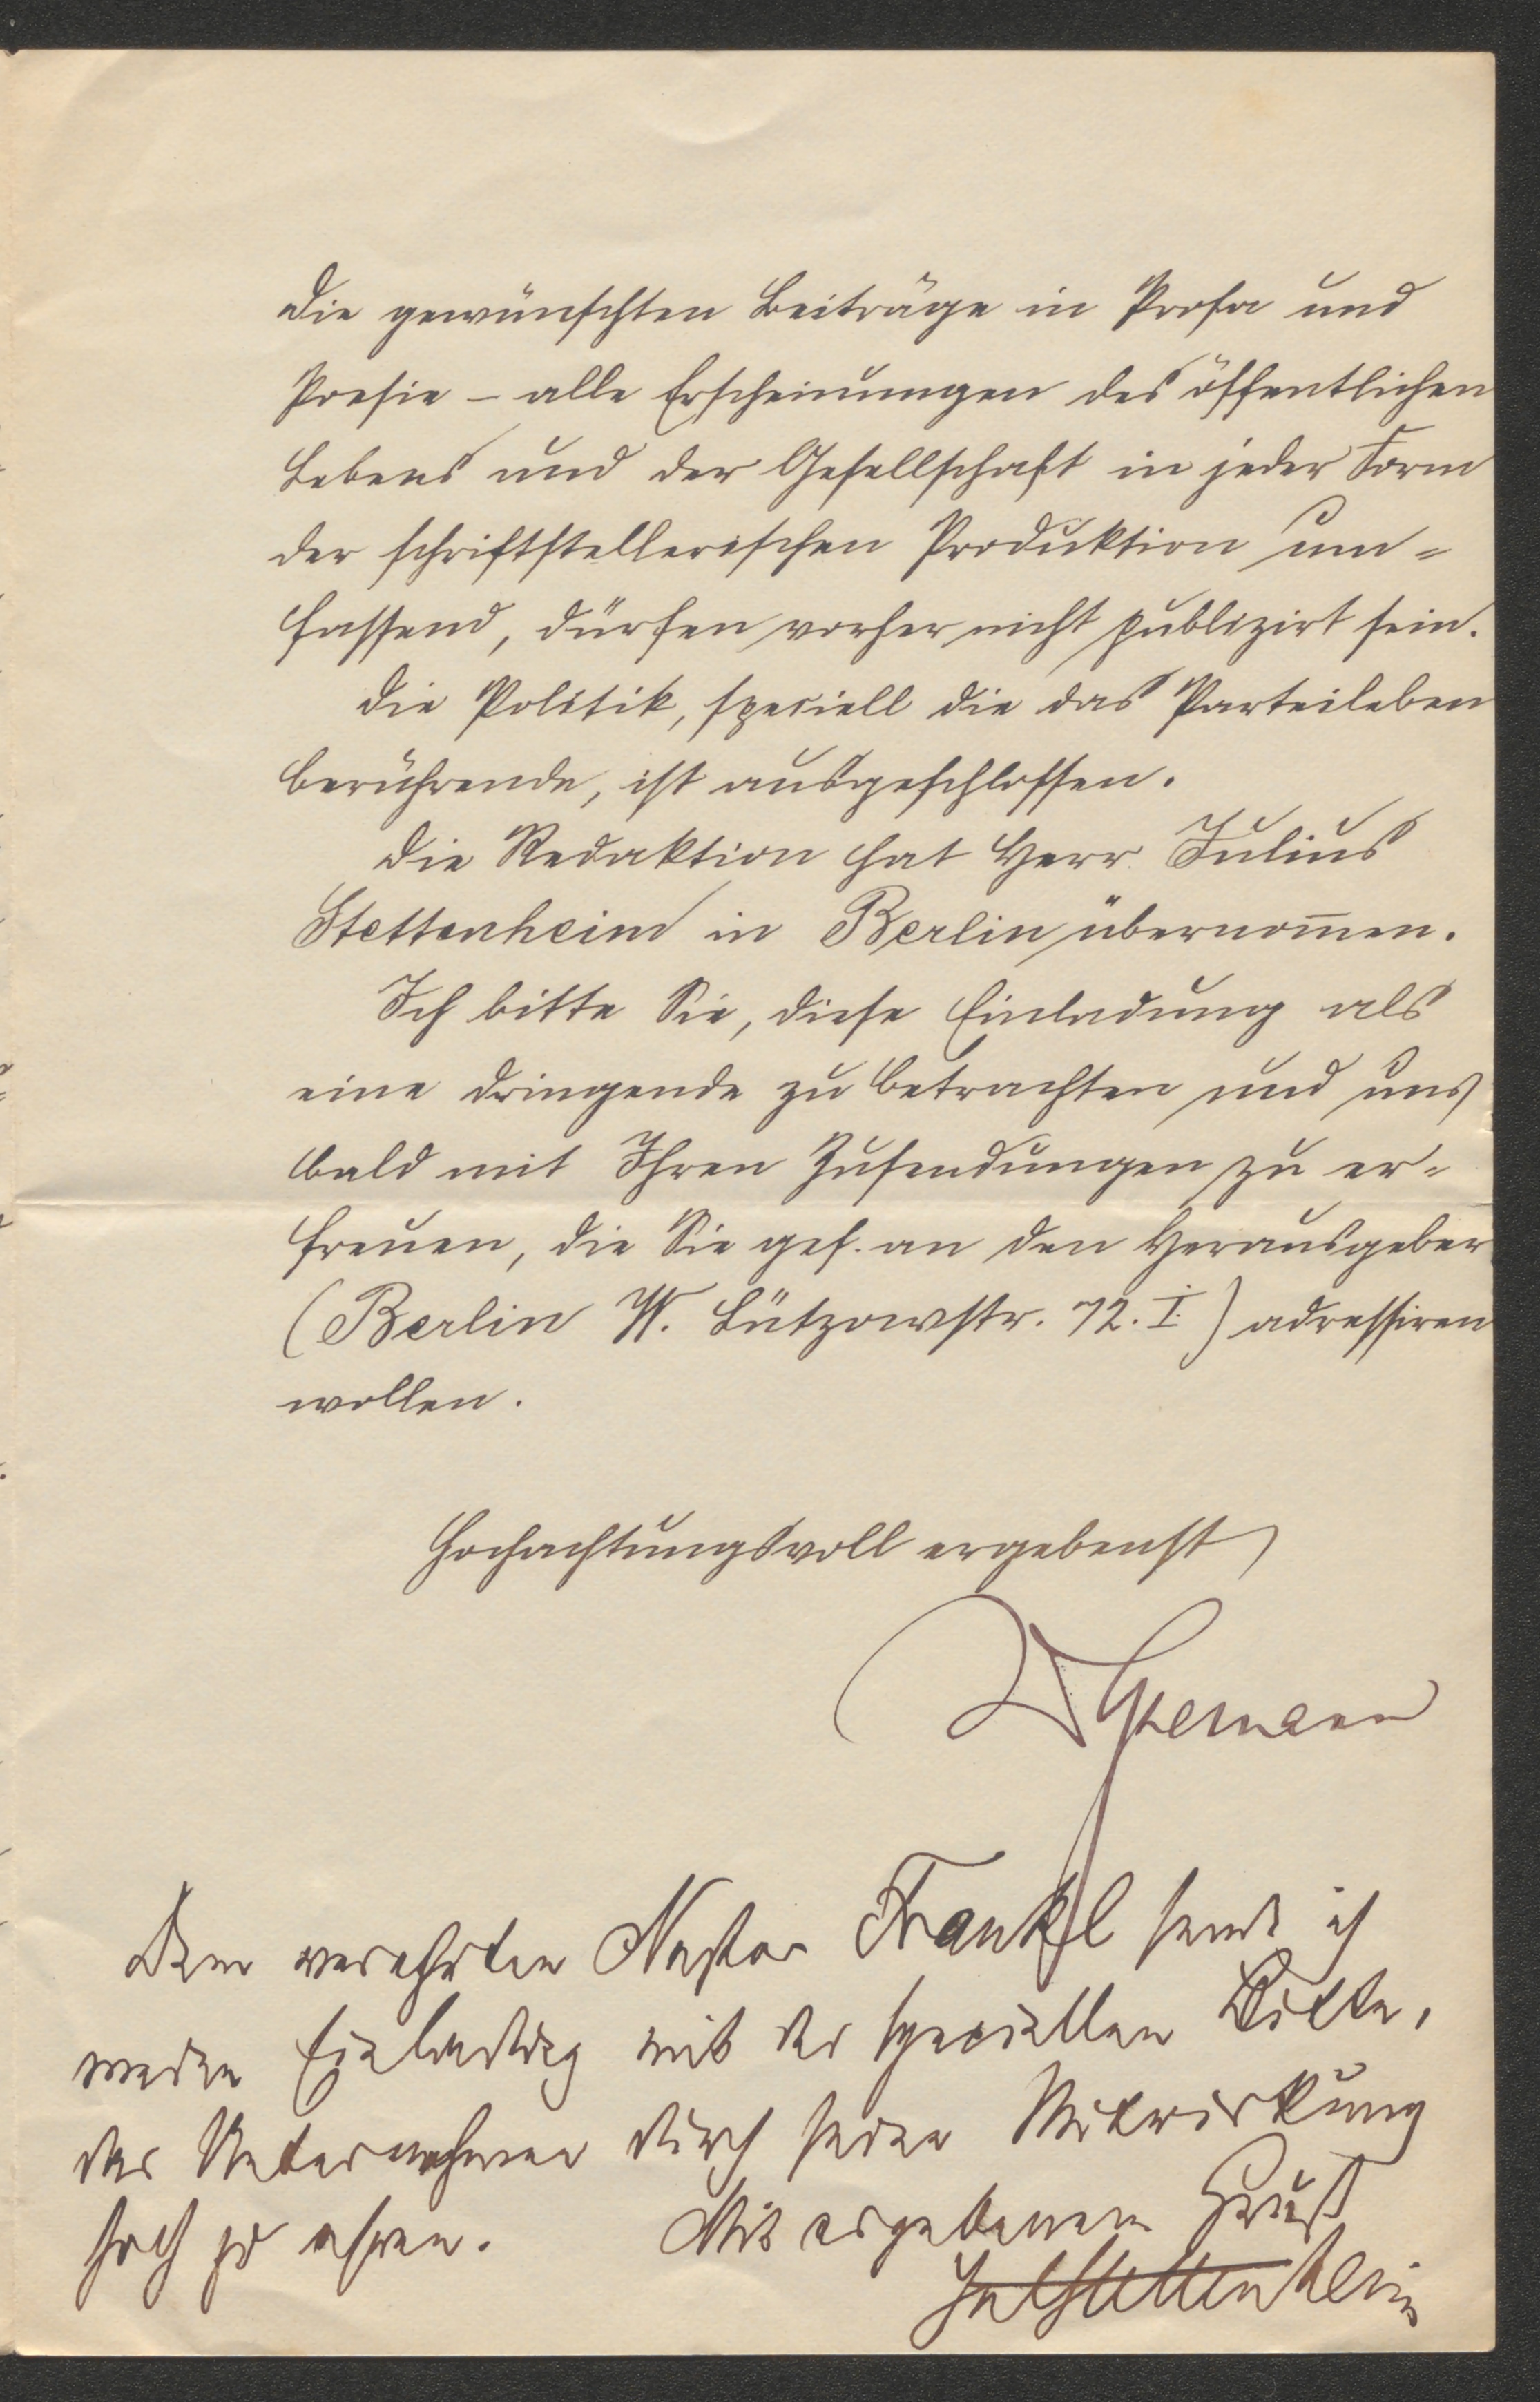 Die gewünschten Beiträge in Prosa und
Poesie – alle Erscheinungen des öffentlichen
Lebens und der Gesellschaft in jeder Form
der schriftstellerischen Produktion um-
fassend, dürfen vorher nicht publizirt sein.
Die Politik, speciell die das Parteileben
berührende, ist ausgeschlossen.
Die Redaktion hat Herr Julius
Stettenheim in Berlin übernom̅en.
Ich bitte Sie, diese Einladung als
eine dringende zu betrachten und uns
bald mit Ihren Zusendungen zu er-
freuen, die Sie gef. an den Herausgeber
(Berlin W. Lützowstr. 72. I.) adressiren
wollen.
Hochachtungsvoll ergebenst
W Spemann
Dem verehrten Nestor Frankl sende ich
meine Einladung mit der speciellen Bitte,
das Unternehmen durch seine Mitwirkung
hoch zu ehren. Mit ergebenem Gruß
Jul Stettenheim